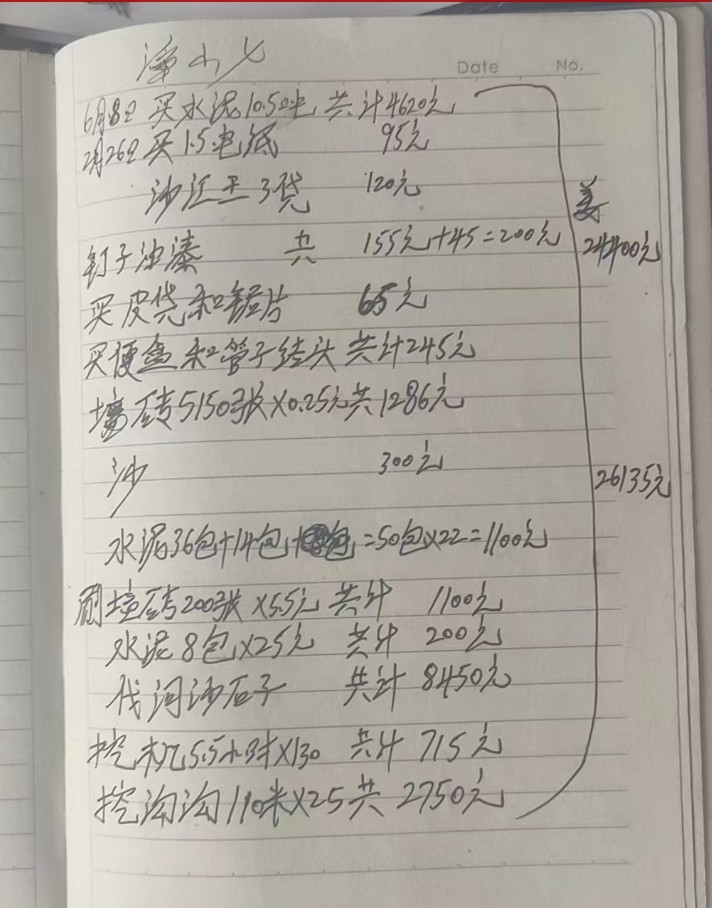 Date No.
6月8日买水泥10.5吨 共计4620元
2月26日买1.5电纸 95元
沙江王3代 120元
姜
钉子油漆 共 155元+45=200元
24400元
买皮代和锯片 65元
买便盆和管子结头共计245元
墙砖5150张×0.25元共1286元
沙 300元
26135元
水泥36包+14包+包=50包×22=1100元
墙砖200张×5.5元共计 1100元
水泥8包×25元 共计 200元
河沙石子 共计 8450元
挖机5.5小时×130 共计 715元
挖沟沟110米×25共 2750元